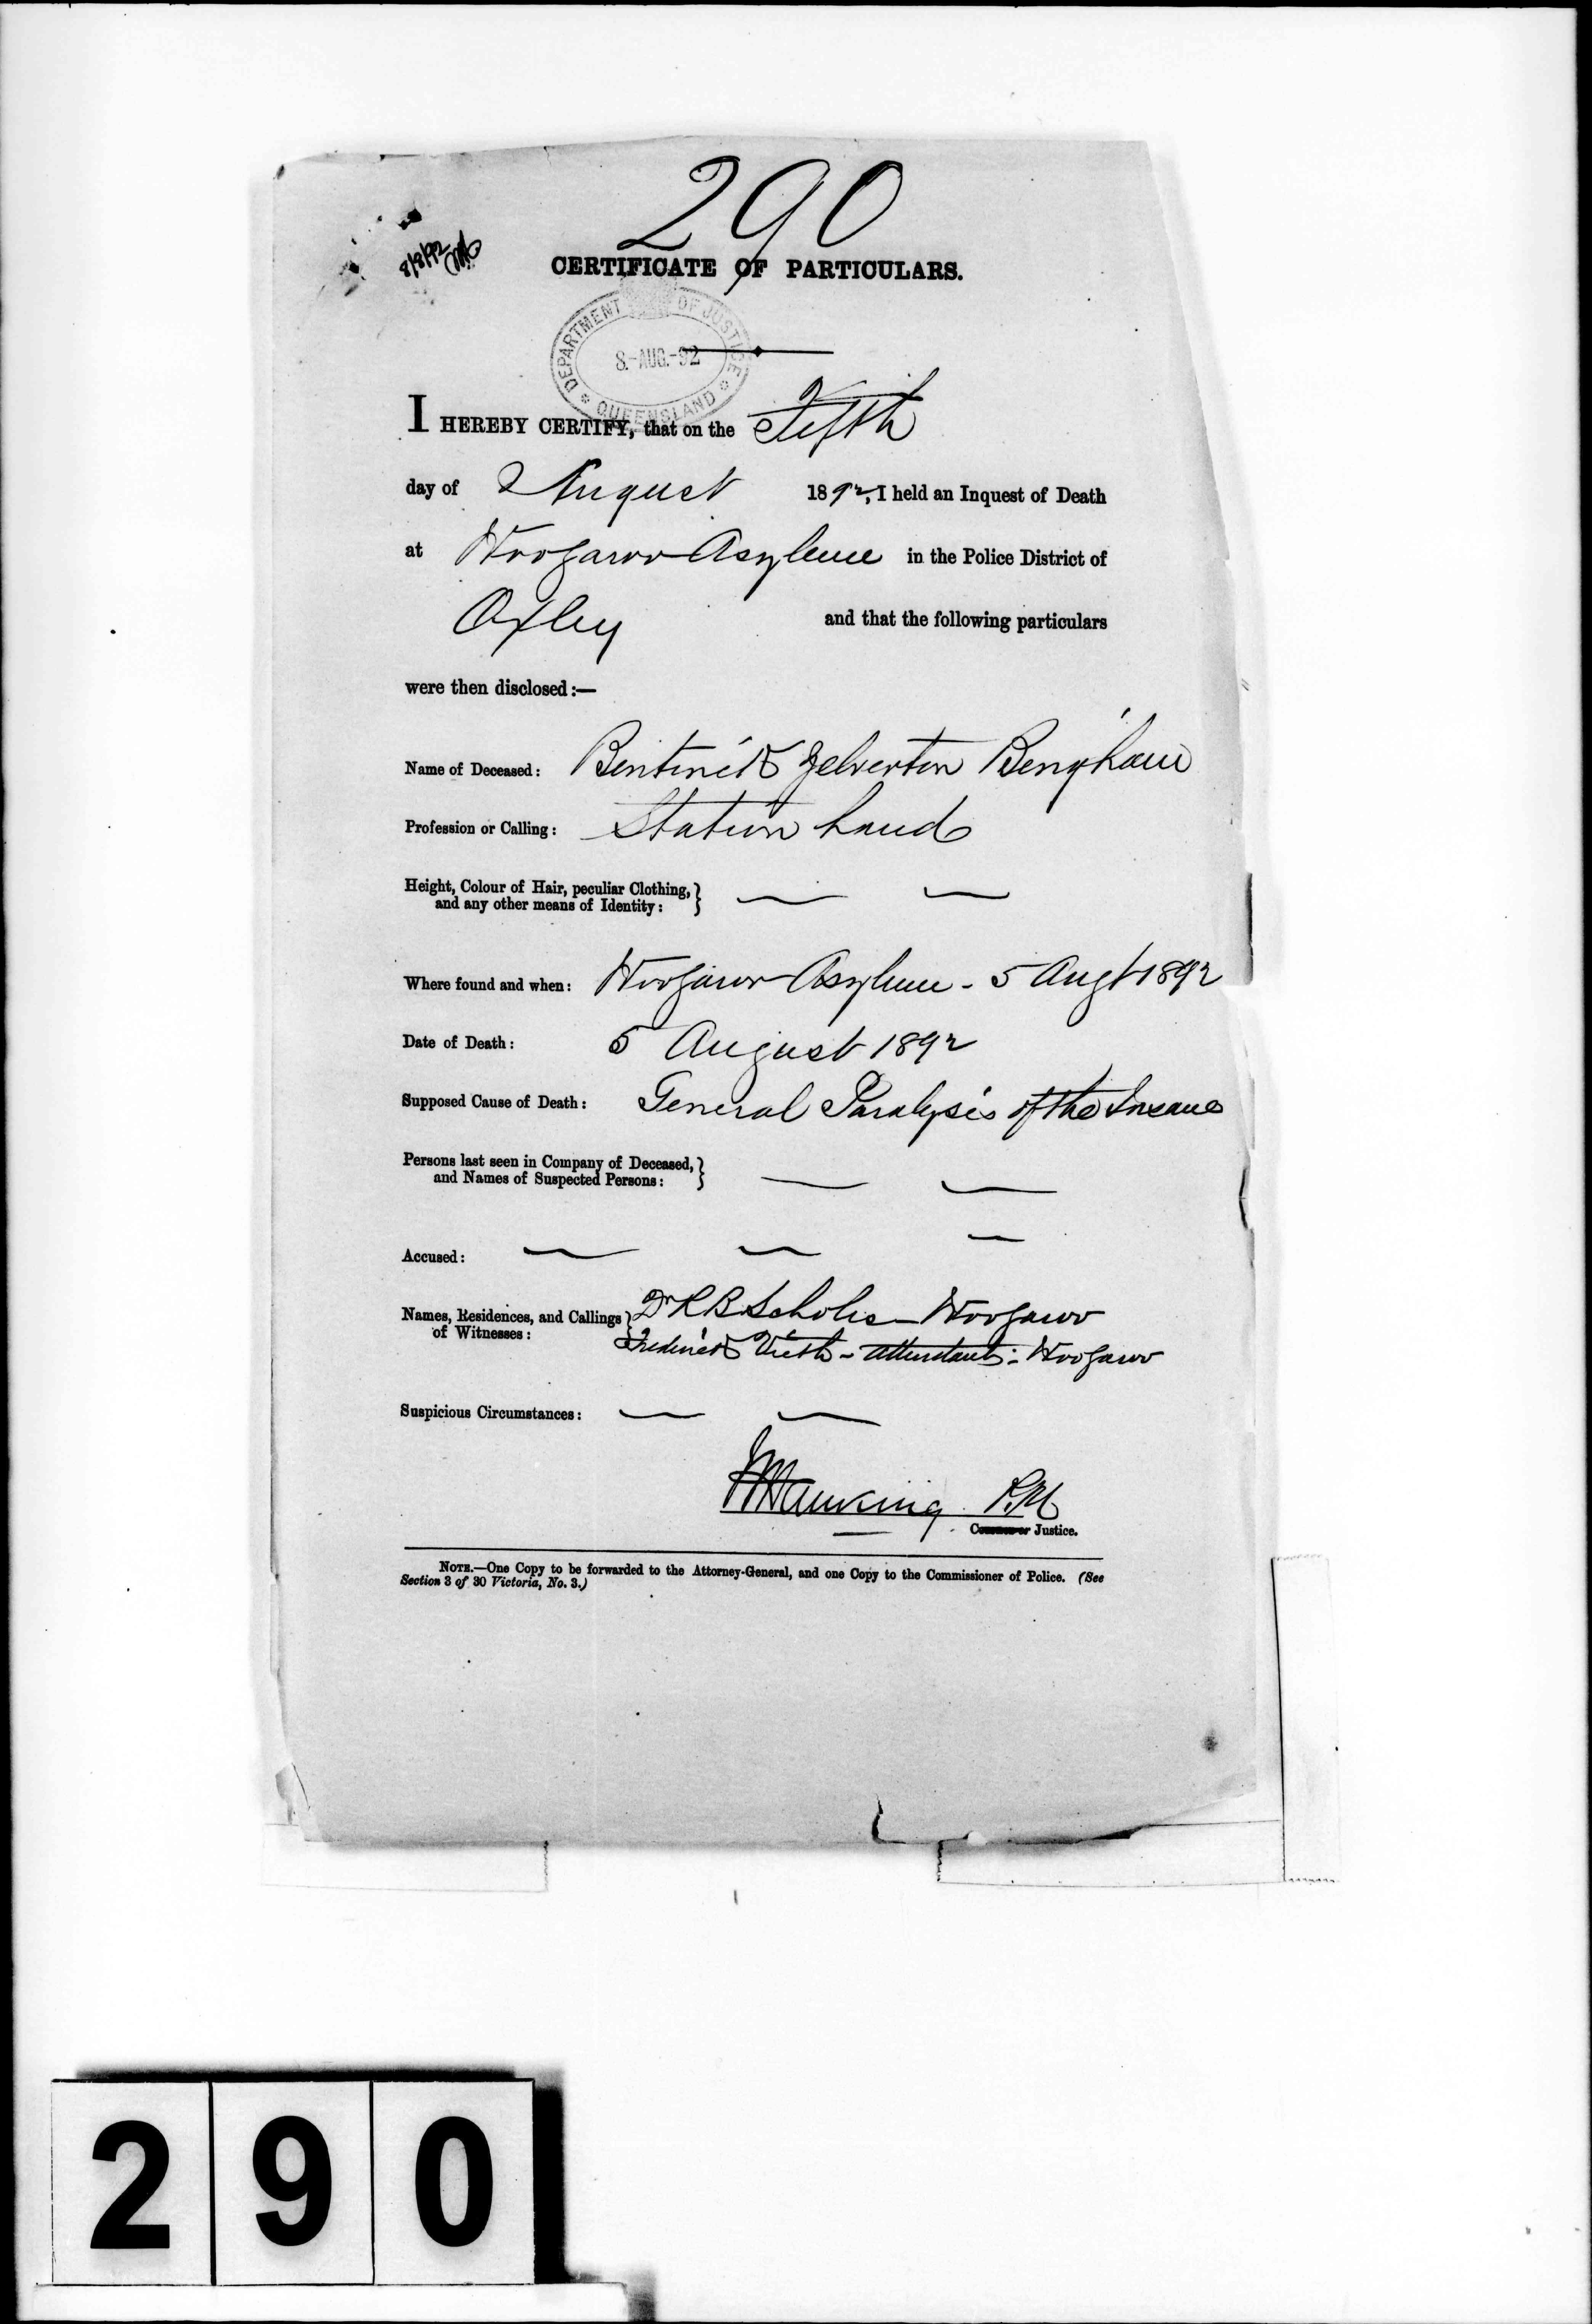 290
8/8/92
CERTIFICATE OF PARTICULARS.
DEPARTMENT OF JUSTICE
8-AUG.-92
QUEENSLAND
I HEREBY CERTIFY, that on the Fifth
day of August 1892, I held an Inquest of Death
at Woogaroo Asylum in the Police District of
Oxley and that the following particulars
were then disclosed:—
Name of Deceased: Bentinck Yelverton Bingham
Profession or Calling: Station hand
Height, Colour of Hair, peculiar Clothing, } — —
and any other means of Identity:
Where found and when: Woogaroo Asylum - 5 Augt 1892
Date of Death: 5 August 1892
Supposed Cause of Death: General Paralysis of the Insane
Persons last seen in Company of Deceased, } — —
and Names of Suspected Persons:
Accused: — — —
Names, Residences, and Callings } Dr R B Scholes - Woogaroo
of Witnesses: Frederick Vieth - attendant - Woogaroo
Suspicious Circumstances: — —
P.M
Coroner or Justice.
NOTE.—One Copy to be forwarded to the Attorney-General, and one Copy to the Commissioner of Police. (See
Section 3 of 30 Victoria, No. 3.)
290